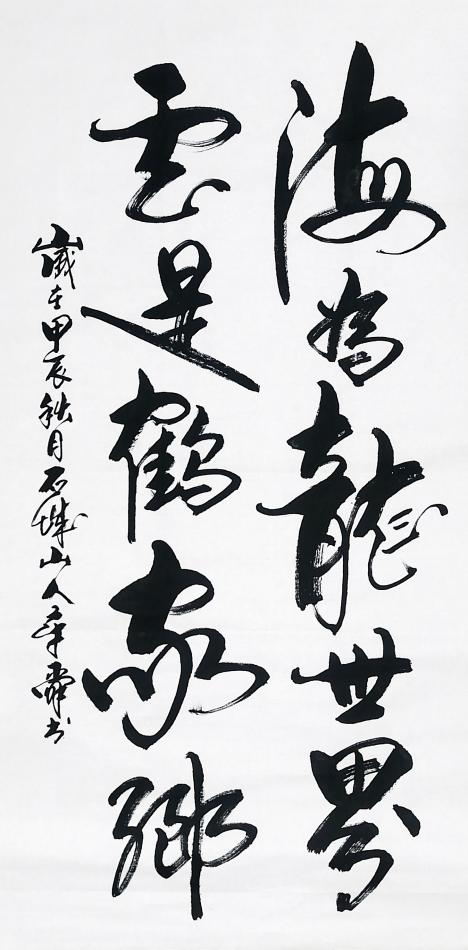 海為龍世界
雲是鶴家鄉
歲在甲辰秋月石城山人幸舜書